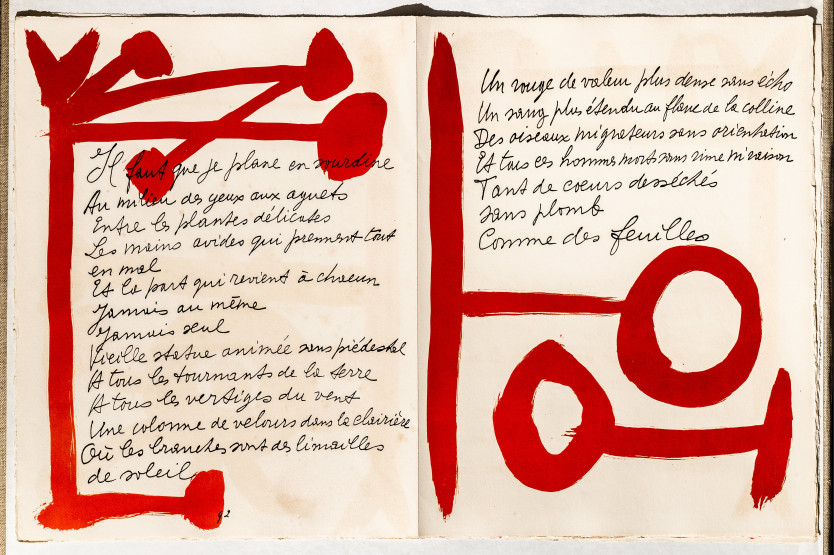 Il faut que je plane en sourdine
Au milieu des yeux aux aguets
Entre les plantes délicates
Les mains avides qui prennent tout
en mal
Et la part qui revient à chacun
Jamais au même
Jamais seul
Vieille statue animée sans piédestal
A tous les tournants de la terre
A tous les vertiges du vent
Une colonne de velours dans la clairière
Où les branches sont des limailles
de soleil
92
Un rouge de valeur plus dense sans écho
Un sang plus étendu au flanc de la colline
Des oiseaux migrateurs sans orientation
Et tous ces hommes morts sans rime ni raison
Tant de cœurs desséchés
sans plomb
Comme des feuilles